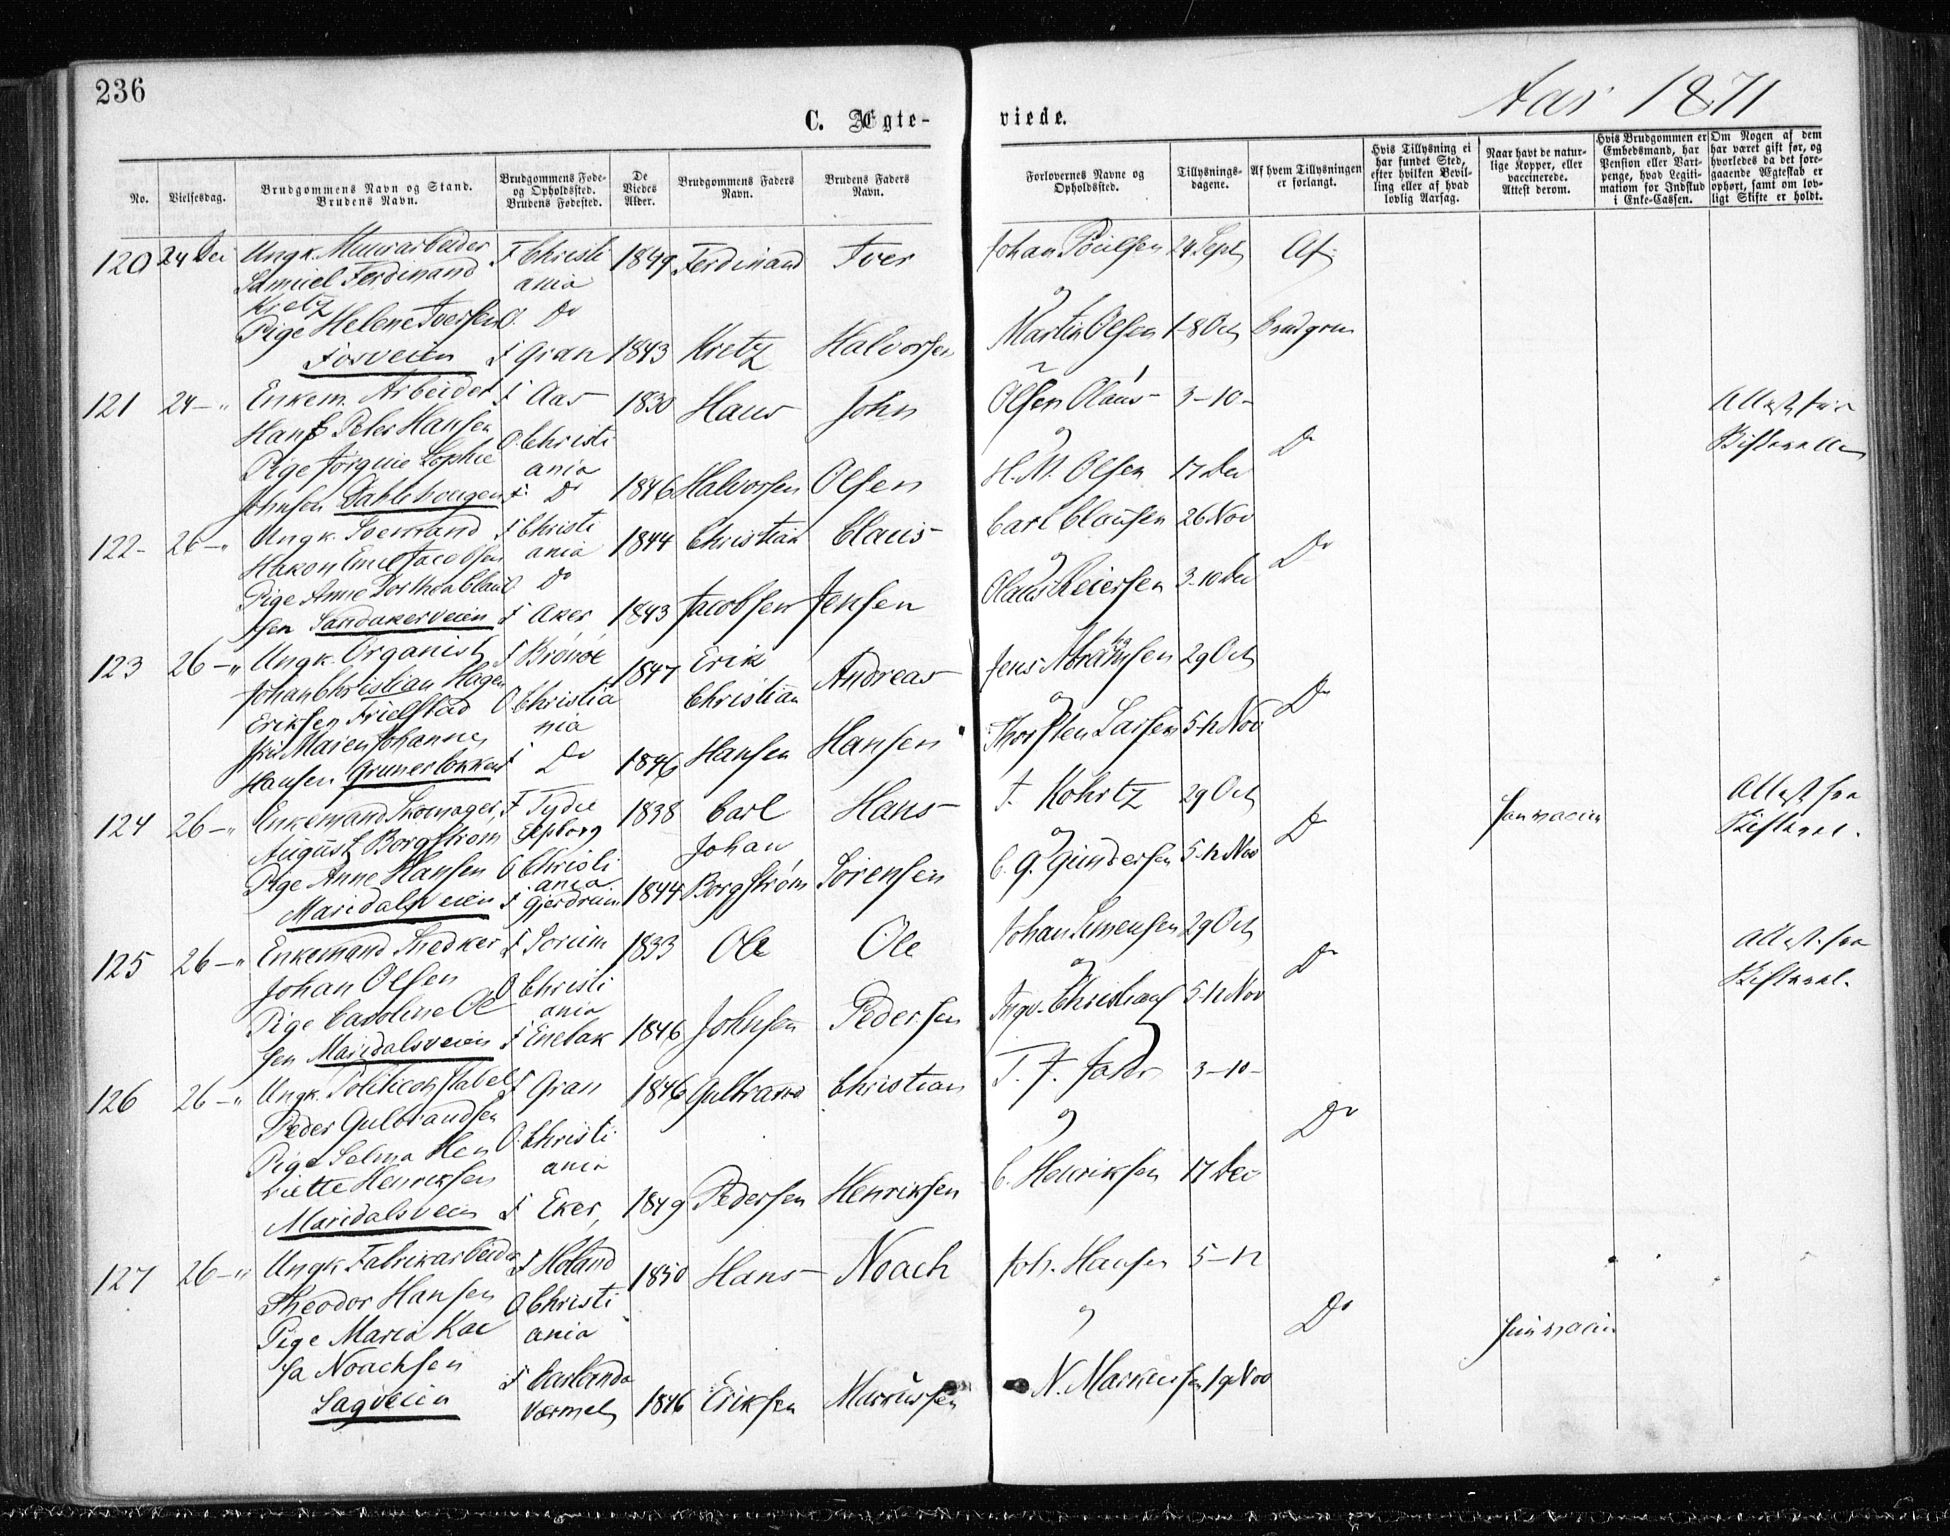 236
C. Ægte-
viede.
Aar 1871
No.
Vielsesdag.
Brudgommens Navn og Stand.
Brudens Navn.
Brudgommens Føde-
og Opholdssted.
Brudens Fødested.
De
Viedes
Alder.
Brudgommens Faders
Navn.
Brudens Faders
Navn.
Forlovernes Navne og
Opholdssted.
Tillysnings-
dagene.
Af hvem Tillysningen
er forlangt.
Hvis Tillysning ei
har fundet Sted,
efter hvilken Bevil-
ling eller af hvad
lovlig Aarsag.
Naar havt de natur-
lige Kopper, eller
vaccinerede.
Attest derom.
Hvis Brudgommen er
Embedsmand, har
Pension eller Vart-
penge, hvad Legiti-
mation for Indskud
i Enke-Cassen.
Om Nogen af dem
har været gift før, og
hvorledes da det fore-
gaaende Ægteskab er
ophørt, samt om lov-
ligt Skifte er holdt.
120 24 Dec Ungk. Muurarbeider F Christi 1849 Ferdinand Iver Johan Poulsen 24 Sept Af
Samuel Ferdinand ania
Kretz og
Pige Helene Iversen O. Do Martin Olsen 1-8 Oct Brudgom
Fosveien F Gran 1843 Kretz Halvorsen
121 24 - " Enkem. Arbeider F Aas 1830 Hans John Olsen Olaus 3-10-
Hans Peter Hansen O. Christi og Do
Pige Jørgine Sophie ania H. M. Olsen 17 Dec
Johnsen Dahlehougen F. Do 1846 Halvorsen Olsen
122- 26 - " Ungk. F Christi 1844 Christian Claus Carl Clausen 26 Nov
Hakon Emil Jacobsen ania og Do
Pige Anne Dorthea Clau O Do Olaus Reiersen 3-10 Dec
sen Sandakerveien F Aker 1843 Jacobsen Jensen
123 26 - " Ungk. Organist F Brønøe 1847 Erik Andreas Jens Abrahamsen 29 Oct
Johan Christian Hagen O Christia Christian og Do
Eriksen Frielstad nia
Maren Johanne Thorsten Larsen 5-12 Nov
Hansen Grunerløkken F Do 1846 Hansen Hansen
124 26 - " Enkemand Skomager F Tydie 1838 Carl Hans Kohrtz 29 Oct Attest fra
August Borgstrøm Elfborg Johan og Do Skifteret.
Pige Anne Hansen O Christi C. G. Gundersen 5-12 Nov
ania
Maridalsveien F Gjerdrum 1844 Borgstrøm Sørensen
125 26 - " Enkemand Snedker F Sørum 1833 Ole Ole Johan Simensen 29 Oct Attest fra
Johan Olsen O Christi og Do Skifteret.
Pige Caroline Ol ania Ingv. Christians 5-12 Nov
sen Maridalsveien F Enebak 1846 Johnsen Pedersen
126 26 - " Ungk. Politiconstabel F Gran 1846 Gulbrand Christian 3-10-
Peder Gulbrandsen og Do
Pige Selma Hen O. Christi
riette Henriksen ania C. Henriksen 17 Dec
Maridalsveien F Eker, 1849 Pedersen Henriksen
127 26 - " Ungk Fabrikarbeider F Høland 1850 Hans Noach Joh. Hansen 5-12
Theodor Hansen O Christi og Do
Pige Maria Kae ania
sa Noachsen F Carlanda N. Markusen 19 Nov
Sagveien Vermel 1846 Eriksen Markussen